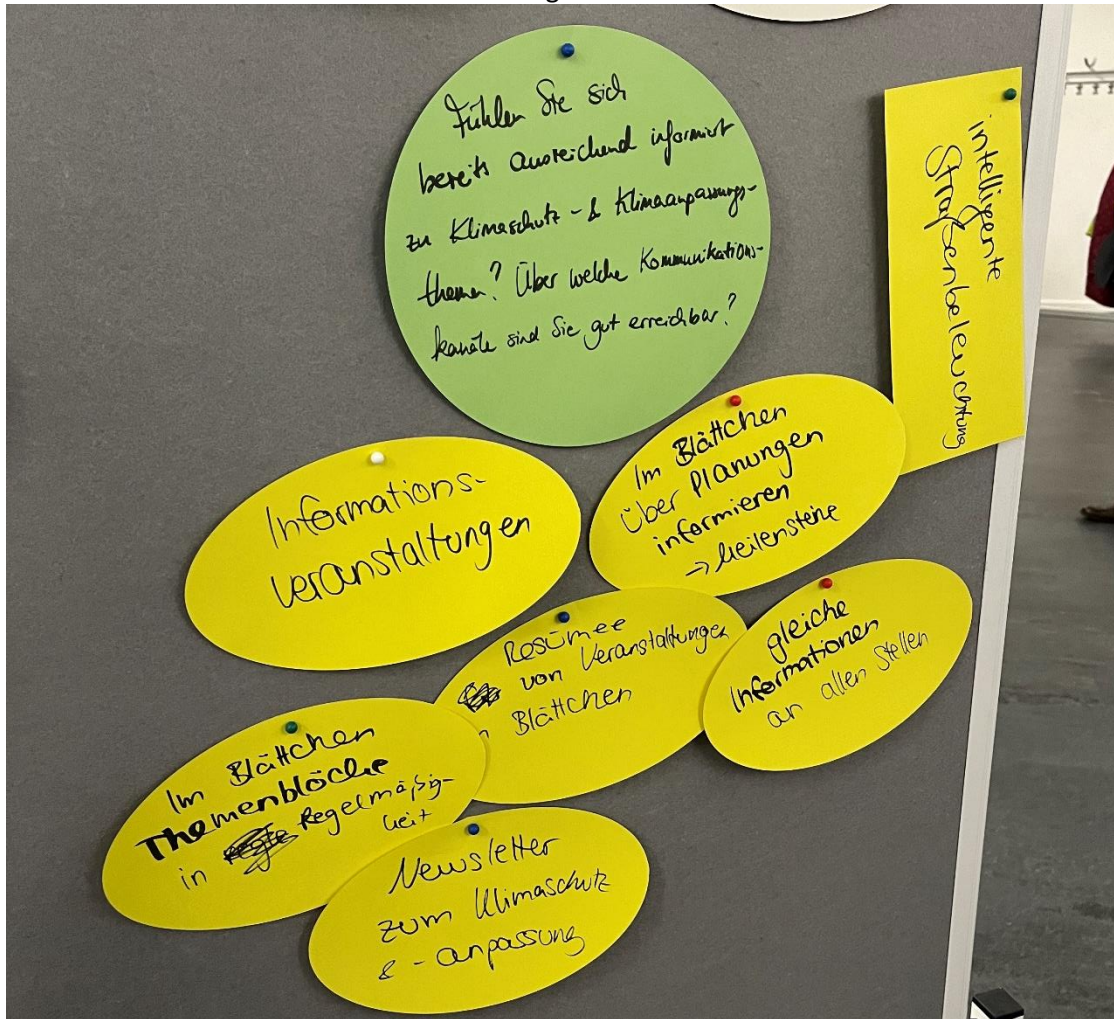 Fühlen Sie sich
bereits ausreichend informiert
zu Klimaschutz- & Klimaanpassungs-
themen? Über welche Kommunikations-
kanäle sind Sie gut erreichbar?
intelligente
Straßenbeleuchtung
Im Blättchen
über Planungen
informieren
→ Meilensteine
Informations-
veranstaltungen
Resümee
von Veranstaltungen
Blättchen
gleiche
Informationen
an allen Stellen
Im Blättchen
Themenblöcke
in Regelmäßig-
keit
Newsletter
zum Klimaschutz
& -anpassung